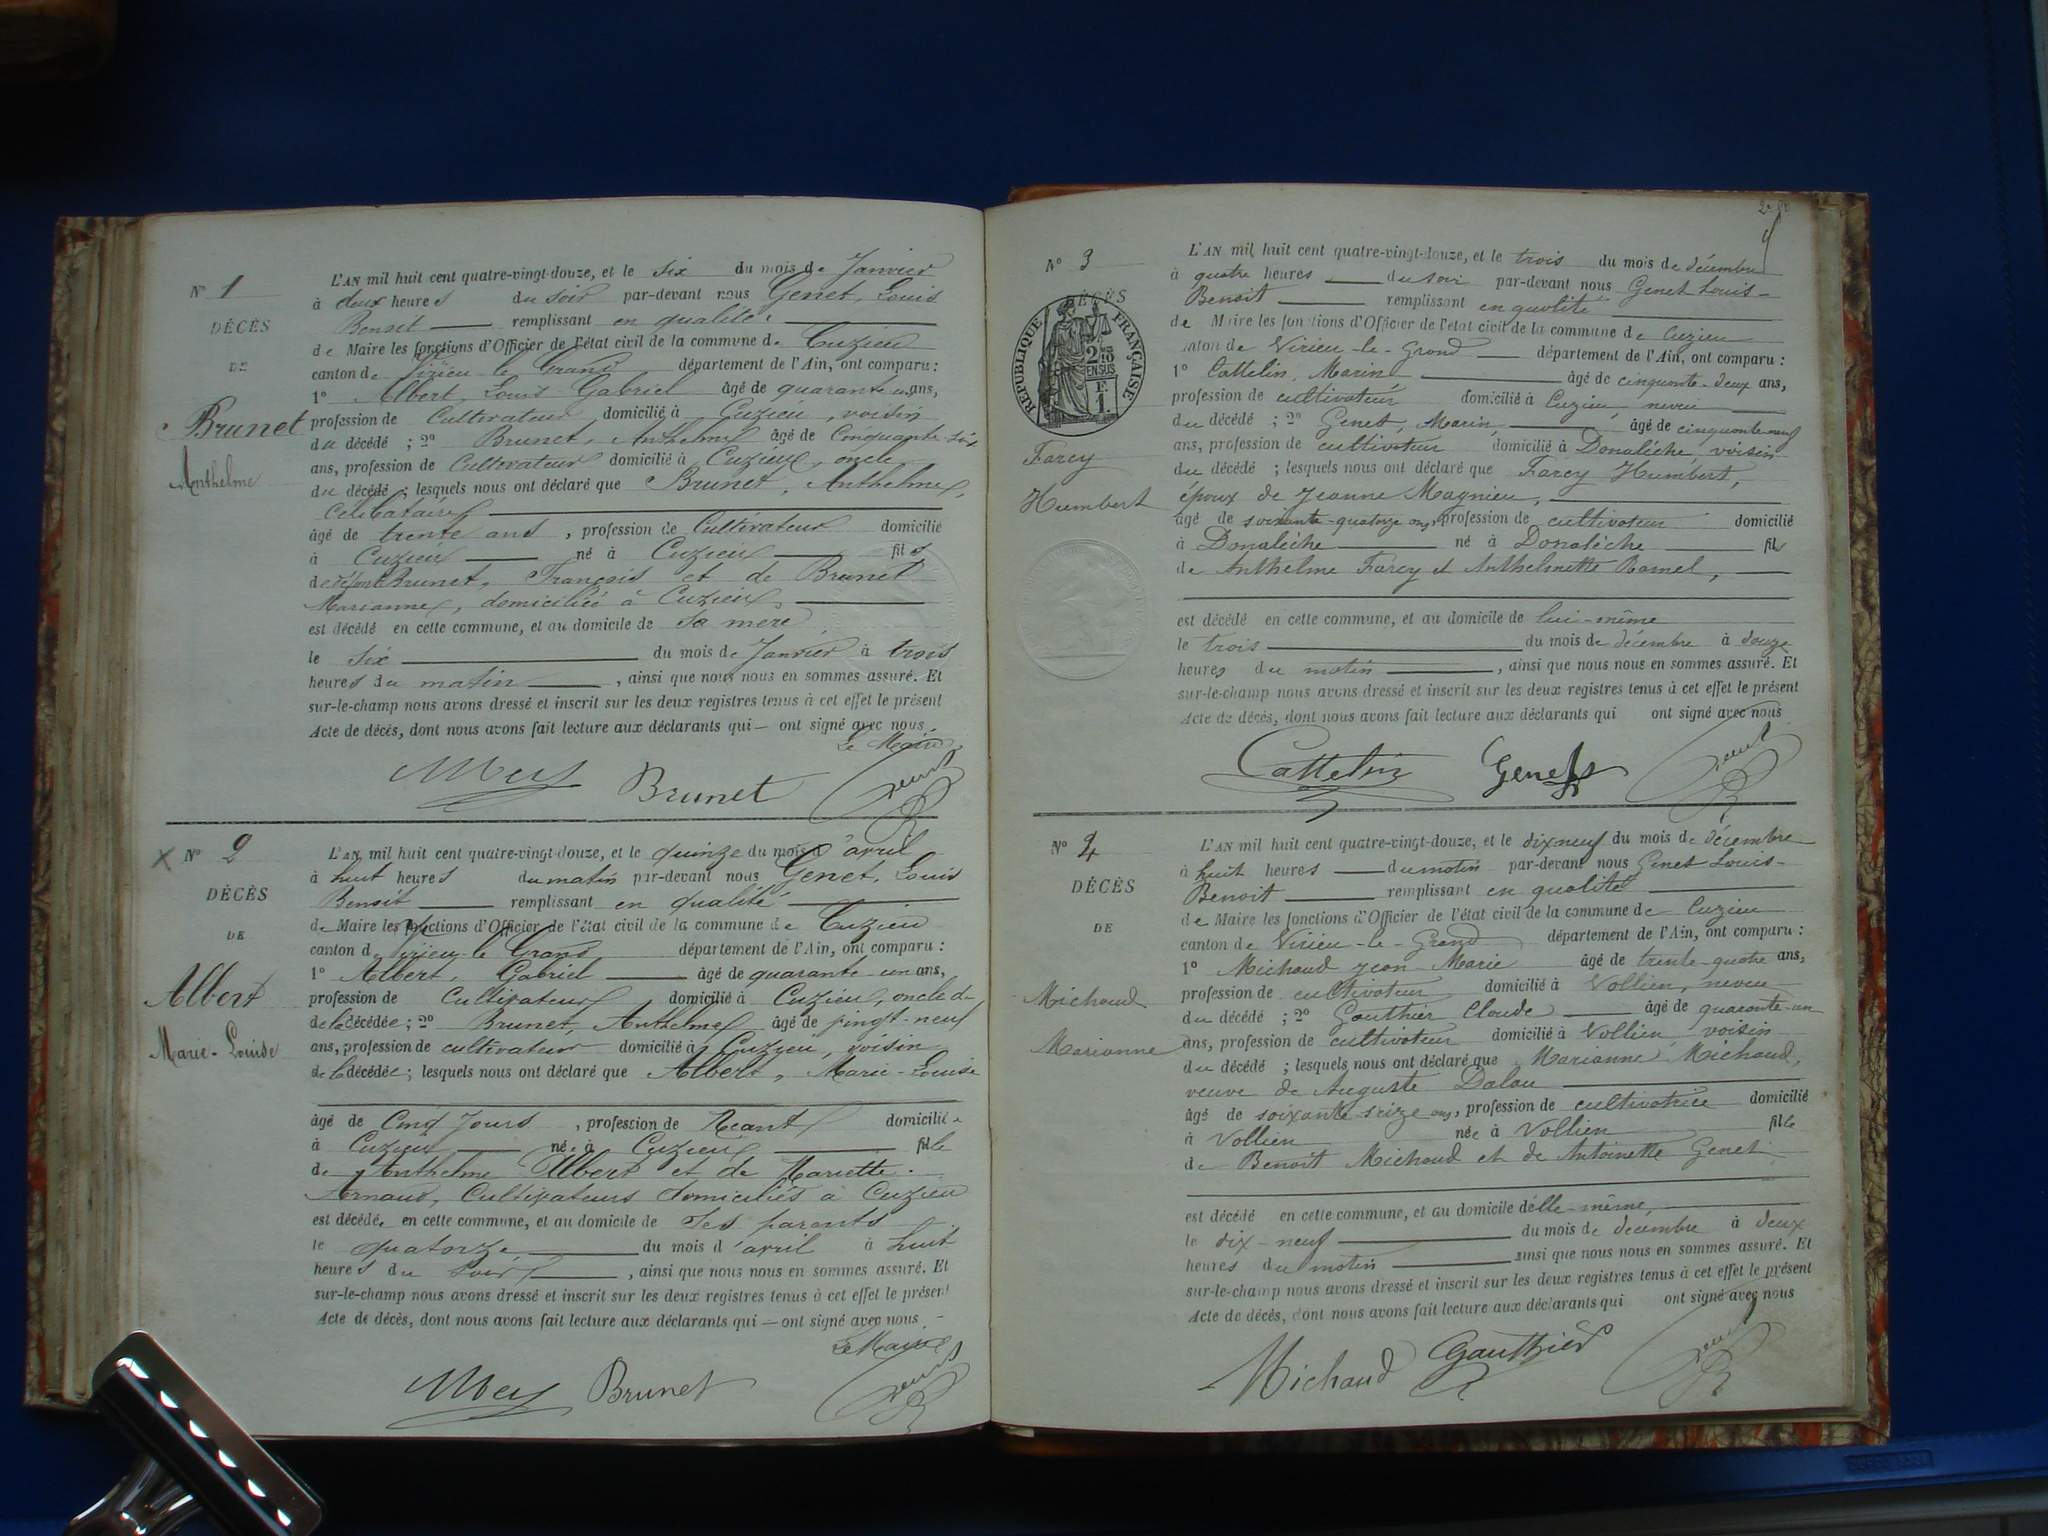 N° 1
DÉCÈS
DE
Brunet
Anthelme
L'AN mil huit cent quatre-vingt-douze, et le six du mois de Janvier
à deux heures du soir par-devant nous Genet, Louis
Benoit remplissant en qualité
de Maire les fonctions d'Officier de l'état civil de la commune de Cuzieu
canton de Virieu le Grand département de l'Ain, ont comparu :
1° Albert, Louis Gabriel âgé de quarante un ans,
profession de Cultivateur domicilié à Cuzieu, voisin
du décédé ; 2° Brunet, Anthelme âgé de Cinquante six
ans, profession de Cultivateur domicilié à Cuzieu, oncle
du décédé ; lesquels nous ont déclaré que Brunet, Anthelme,
Célibataire
âgé de trente ans, profession de Cultivateur domicilié
à Cuzieu né à Cuzieu fils
de défunt Brunet, François et de Brunet
Marianne, domiciliée à Cuzieu,
est décédé en cette commune, et au domicile de sa mère
le six du mois de Janvier à trois
heures du matin, ainsi que nous nous en sommes assuré. Et
sur-le-champ nous avons dressé et inscrit sur les deux registres tenus à cet effet le présent
Acte de décès, dont nous avons fait lecture aux déclarants qui — ont signé avec nous.
Le Maire
Albert Brunet Genet
N° 2
DÉCÈS
DE
Albert
Marie-Louise
L'AN mil huit cent quatre-vingt-douze, et le quinze du mois d'avril
à huit heures du matin par-devant nous Genet, Louis
Benoit remplissant en qualité
de Maire les fonctions d'Officier de l'état civil de la commune de Cuzieu
canton de Virieu le Grand département de l'Ain, ont comparu :
1° Albert, Gabriel âgé de quarante-un ans,
profession de Cultivateur domicilié à Cuzieu, oncle d
de la décédée ; 2° Brunet, Anthelme âgé de vingt-neuf
ans, profession de cultivateur domicilié à Cuzieu, voisin
de la décédée ; lesquels nous ont déclaré que Albert, Marie-Louise
âgé de Cinq Jours, profession de Néant domicilié
à Cuzieu née à Cuzieu fille
de Anthelme Albert et de Mariette
Arnaud, Cultivateurs domiciliés à Cuzieu
est décédé, en cette commune, et au domicile de ses parents
le quatorze du mois d'avril à huit
heures du soir, ainsi que nous nous en sommes assuré. Et
sur-le-champ nous avons dressé et inscrit sur les deux registres tenus à cet effet le présent
Acte de décès, dont nous avons fait lecture aux déclarants qui — ont signé avec nous.
Le Maire
Albert Brunet Genet
N° 3
DÉCÈS
RÉPUBLIQUE FRANÇAISE
Farcy
Humbert
L'AN mil huit cent quatre-vingt-douze, et le trois du mois de décembre
à quatre heures du soir par-devant nous Genet Louis-
Benoit remplissant en qualité
de Maire les fonctions d'Officier de l'état civil de la commune de Cuzieu
canton de Virieu-le-Grand département de l'Ain, ont comparu :
1° Cattelin, Marin âgé de cinquante-deux ans,
profession de cultivateur domicilié à Cuzieu, neveu
du décédé ; 2° Genet, Marin, âgé de cinquante neuf
ans, profession de cultivateur domicilié à Donalèche, voisin
du décédé ; lesquels nous ont déclaré que Farcy Humbert,
époux de Jeanne Magnieu,
âgé de soixante-quatorze ans, profession de cultivateur domicilié
à Donalèche né à Donalèche fils
de Anthelme Farcy et Anthelmette Ramel,
est décédé en cette commune, et au domicile de lui-même
le trois du mois de décembre à douze
heures du matin, ainsi que nous nous en sommes assuré. Et
sur-le-champ nous avons dressé et inscrit sur les deux registres tenus à cet effet le présent
Acte de décès, dont nous avons fait lecture aux déclarants qui ont signé avec nous
Cattelin Genet Genet
N° 4
DÉCÈS
DE
Michaud
Marianne
L'AN mil huit cent quatre-vingt-douze, et le dix neuf du mois de décembre
à huit heures du matin par-devant nous Genet Louis-
Benoit remplissant en qualité
de Maire les fonctions d'Officier de l'état civil de la commune de Cuzieu
canton de Virieu-le-Grand département de l'Ain, ont comparu :
1° Michaud Jean-Marie âgé de trente-quatre ans,
profession de cultivateur domicilié à Vollien, neveu
du décédé ; 2° Gauthier Claude âgé de quarante-un
ans, profession de cultivateur domicilié à Vollien voisin
du décédé ; lesquels nous ont déclaré que Marianne Michaud,
veuve de Auguste Dalau
âgé de soixante-seize ans, profession de cultivatrice domicilié
à Vollien née à Vollien fille
de Benoit Michaud et de Antoinette Genet
est décédé en cette commune, et au domicile d'elle-même,
le dix-neuf du mois de decembre à deux
heures du matin ainsi que nous nous en sommes assuré. Et
sur-le-champ nous avons dressé et inscrit sur les deux registres tenus à cet effet le présent
Acte de décès, dont nous avons fait lecture aux déclarants qui ont signé avec nous
Michaud Gauthier Genet